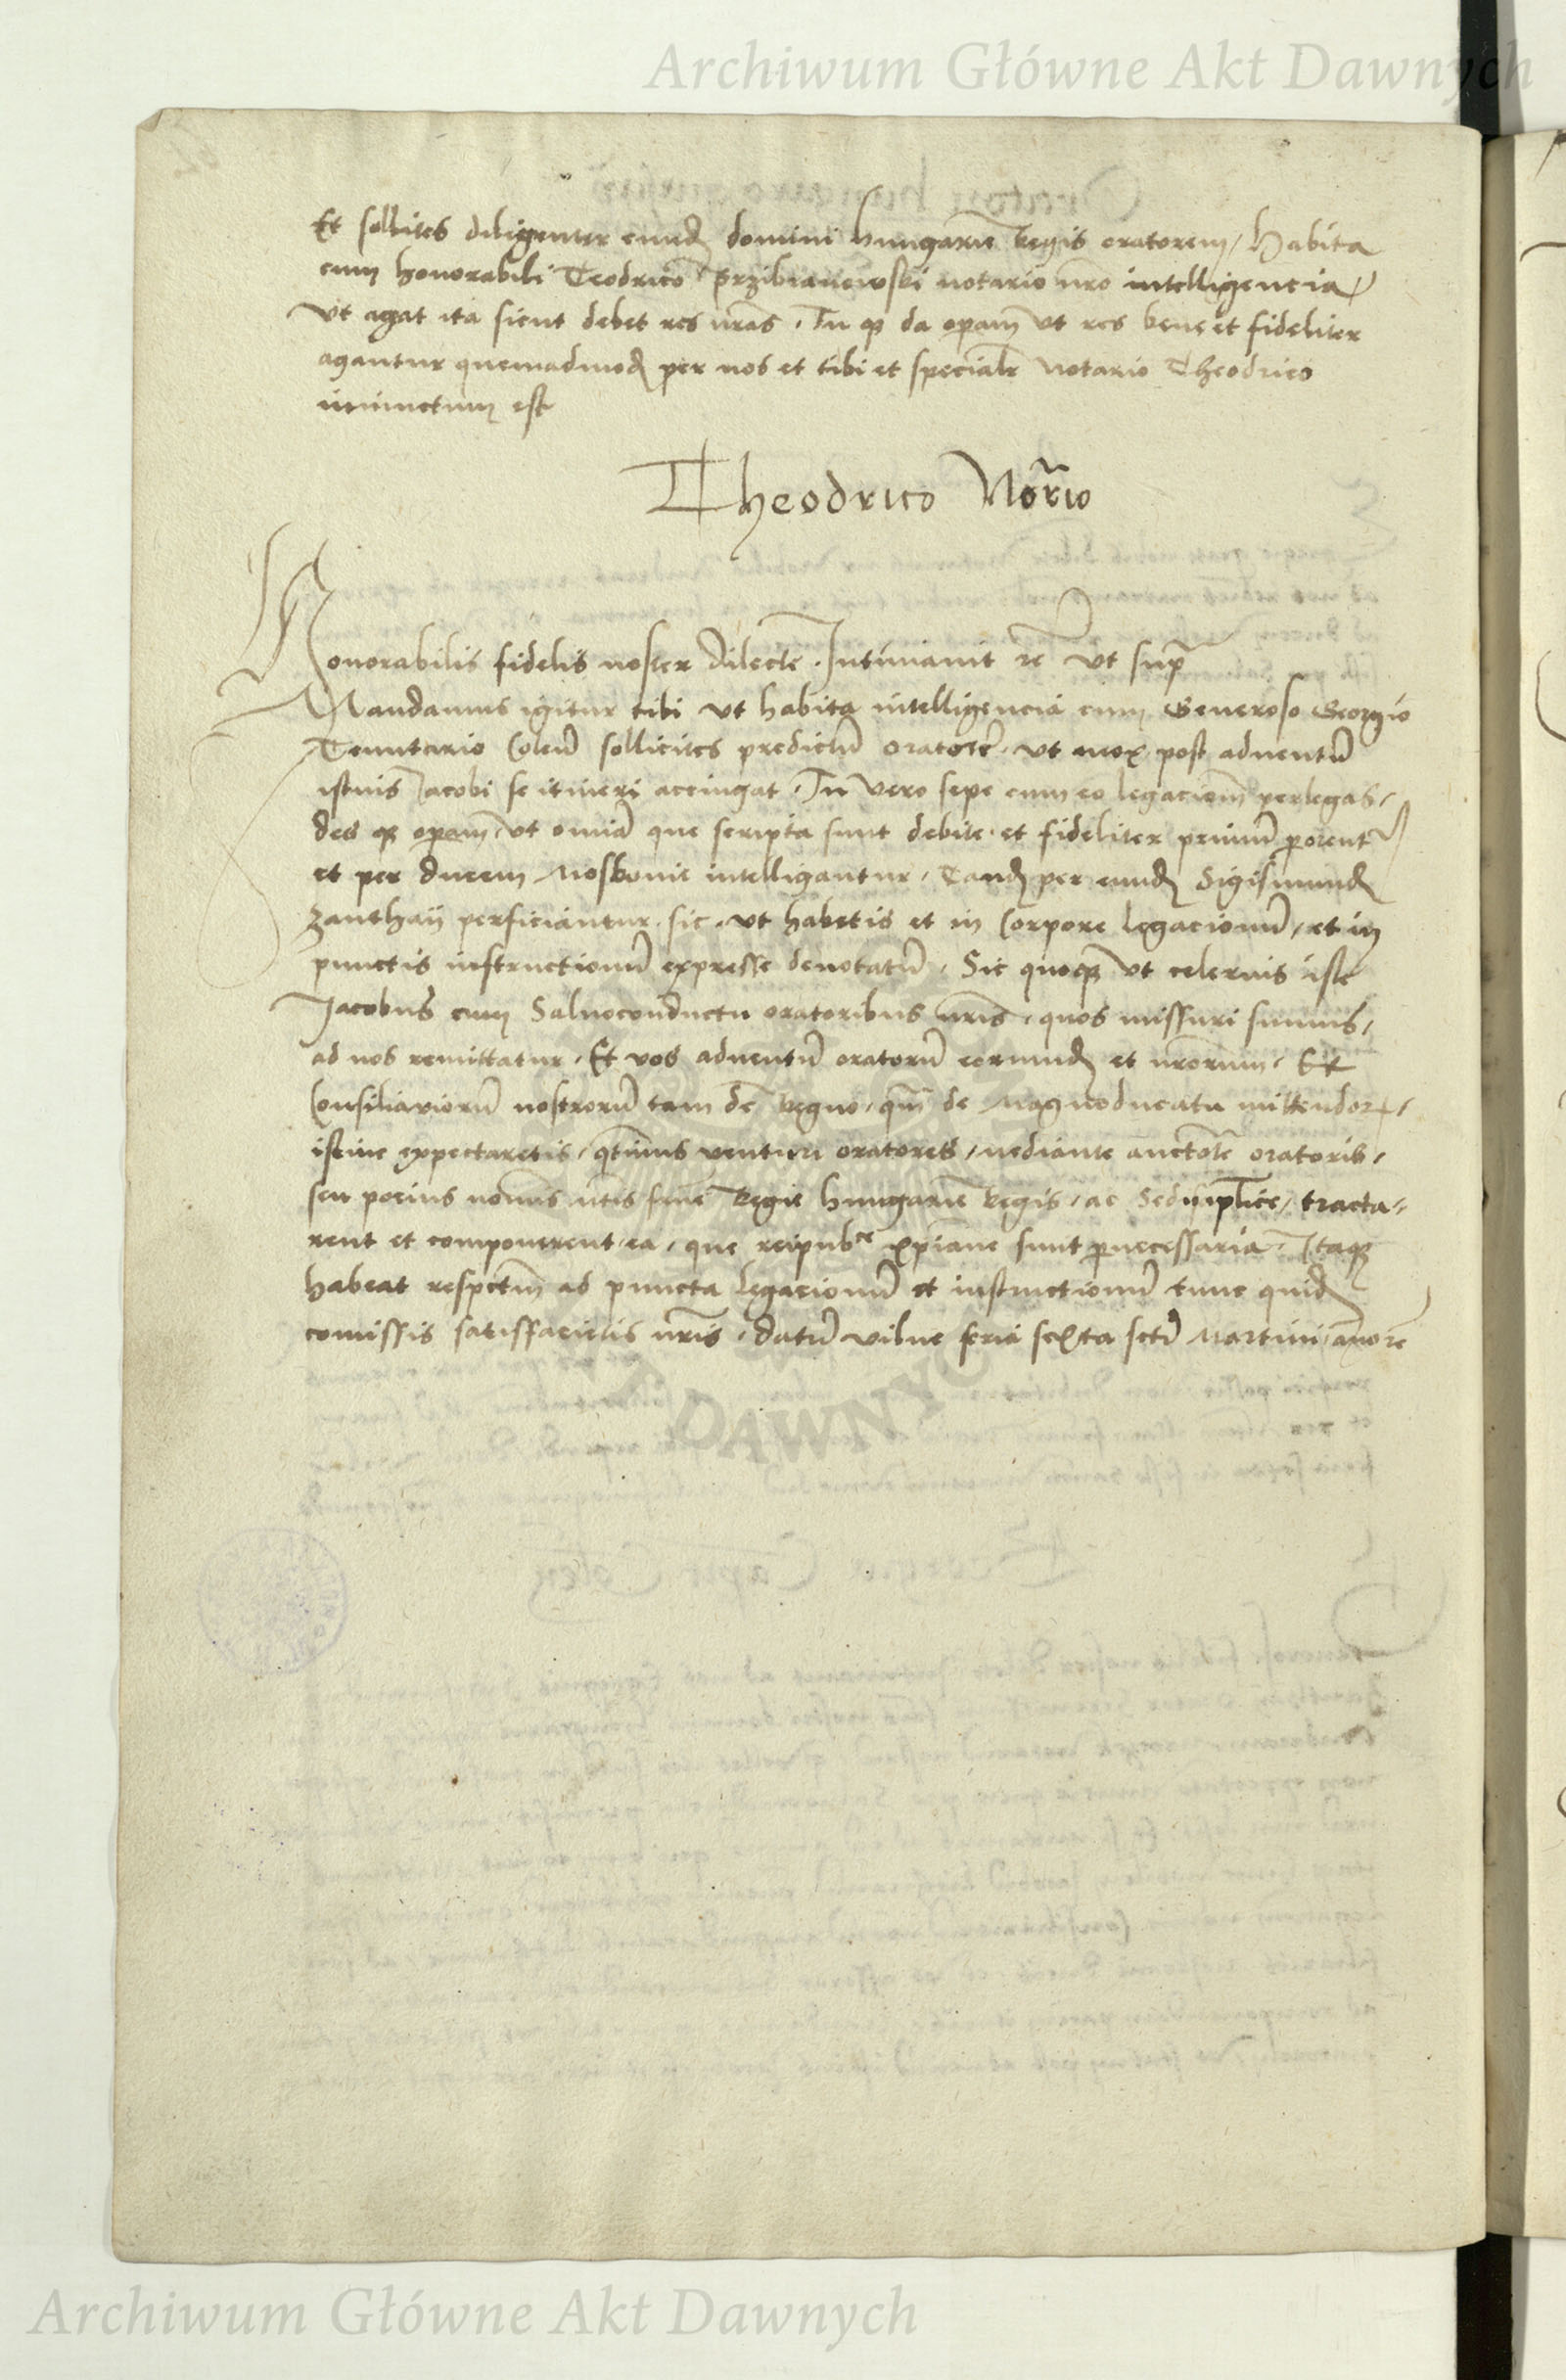 Archiwum Główne Akt Dawnych
Et sollites diligenter eiusdē domini hungarie Regis oratorem, habita
cum honorabili Teodrico Przibranowski notario nr̄o intelligencia,
Vt agat ita sicut debet res nr̄as. Tu qz da operam̄ vt res bene et fideliter
agantur quemadmodū per nos et tibi et specialr̄ Notario Theodrico
iniunctum est
Theodrico Nor̄io
Honorabilis fidelis noster dilecte. Intimauit rē vt supr̄
Mandamus igitur tibi vt habita intelligencia cum Generoso Georgio
Tenutario Colen̄ sollicites predictū oratorē. vt mox post aduentū
istius Jacobi se itineri accingat. Tu vero sepe cum eo legaciom̄ perlegas,
des qz operam̄, vt omnia que scripta sunt debite et fideliter primū porrent
et per ducem Moskouie intelligantur, Tandē per eundē Sigismundū
Zanthaij perficiantur. sic. vt habetis et in Corpore legacionū, et in
punctis instructionū expresse denotatū. Sic quoqz vt celerius iste
Jacobus cum Saluoconductu oratoribus nr̄is, quos missuri sumus,
ad nos remittatur. Et vos aduentū oratorū eorundē et nr̄orum. Et
Consiliariorū nostrorū tam de Regno, qm̄ de Magnoducatu mittendor,
istinc expectaretis, qtinus venturi oratores, mediante auctote oratoris,
seu pocius nomis Regie hungarie Regis, ac Sedis aplice, tracta-
rent et componerent ea, que reipubce xp̄iane sunt pernecessaria. Itaqz
habeat respectm̄ ad puncta legacionū et instructionū tunc quidē
comissis satisfacietis nr̄is. datū vilne feria sexta scti Martini, anno rē
DAWNYCH
Archiwum Główne Akt Dawnych